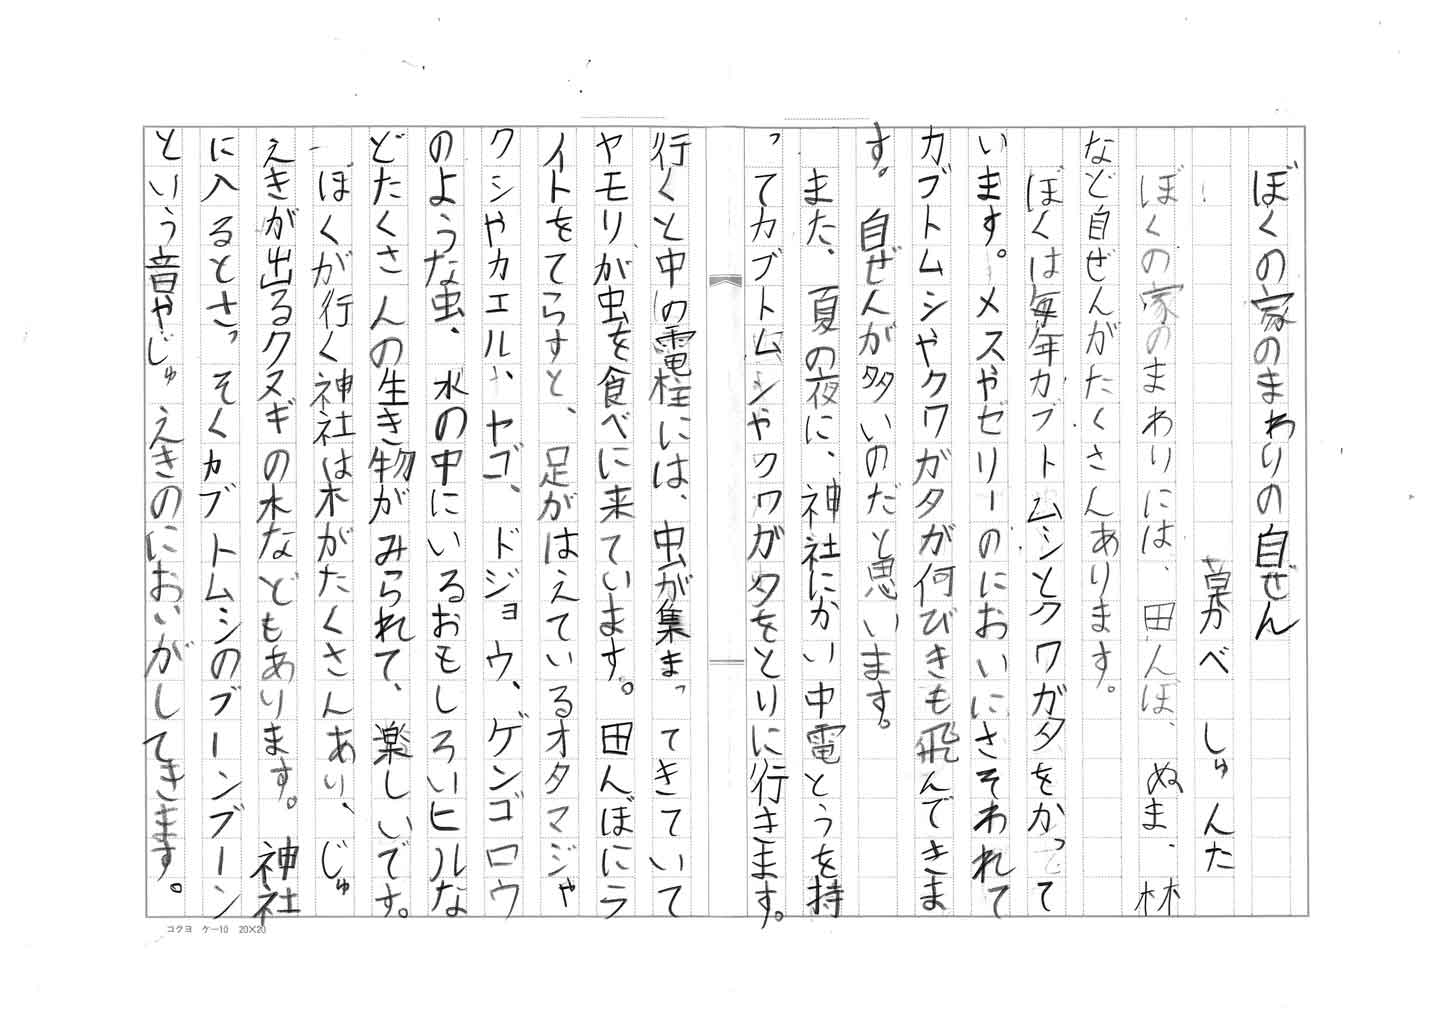 ぼくの家のまわりの自ぜん
草かべ しゅんた
ぼくの家のまわりには、田んぼ、ぬま、林
など自ぜんがたくさんあります。
ぼくは毎年カブトムシとクワガタをかって
います。メスやゼリーのにおいにさそわれて
カブトムシやクワガタが何びきも飛んできま
す。自ぜんが多いのだと思います。
また、夏の夜に、神社にかい中電とうを持
ってカブトムシやクワガタをとりに行きます。
行くと中の電柱には、虫が集まってきていて
ヤモリが虫を食べに来ています。田んぼにラ
イトをてらすと、足がはえているオタマジャ
クシやカエル、ヤゴ、ドジョウ、ゲンゴロウ
のような虫、水の中にいるおもしろいヒルな
どたくさんの生き物がみられて、楽しいです。
ぼくが行く神社は木がたくさんあり、じゅ
えきが出るクヌギの木などもあります。神社
に入るとさっそくカブトムシのブーンブーン
という音やじゅえきのにおいがしてきます。
コクヨ ケー10 20×20